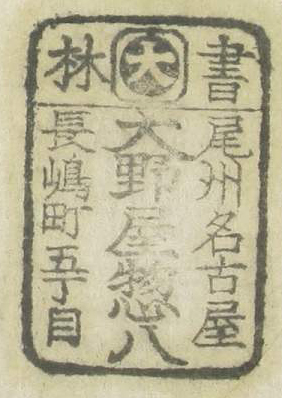 書林
大
尾州名古屋
大野屋惣八
長嶋町五丁目